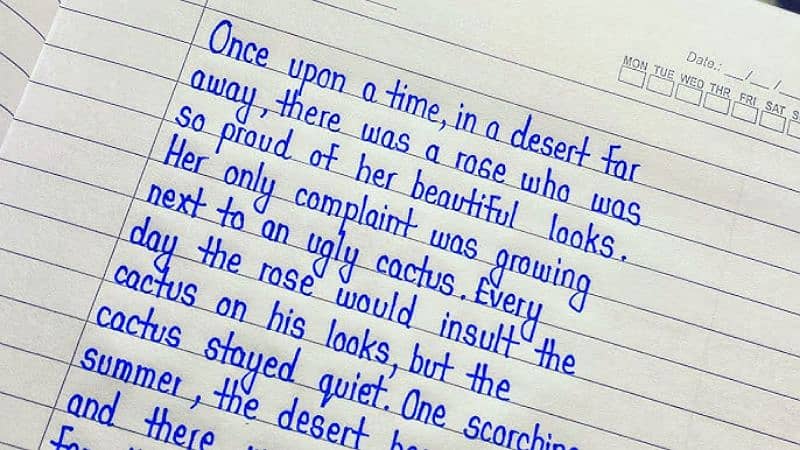 Date.: __/__/__
MON TUE WED THR FRI SAT
Once upon a time, in a desert far
away, there was a rose who was
so proud of her beautiful looks.
Her only complaint was growing
next to an ugly cactus. Every
day the rose would insult the
cactus on his looks, but the
cactus stayed quiet. One
summer, the desert
and there